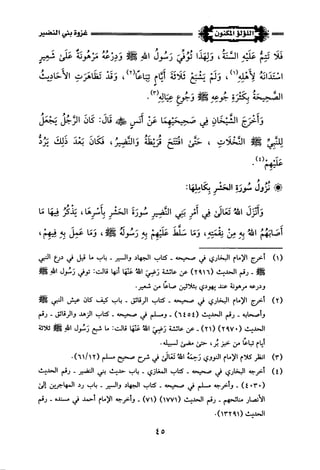 اللؤلؤ المكنون
غزوة بني النضير
فَلَا تَتِمُّ عَلَيْهِ السَّنَةُ، وَلِهَذَا تُوُفِّيَ رَسُولُ اللهِ ﷺ وَدِرْعُهُ مَرْهُونَةٌ عَلَىٰ شَعِيرٍ
اسْتَدَانَهُ لِأَهْلِهِ(١)، وَلَمْ يَشْبَعْ ثَلَاثَةَ أَيَّامٍ تِبَاعًا(٢)، وَقَدْ تَظَاهَرَتِ الْأَحَادِيثُ
الصَّحِيحَةُ بِكَثْرَةِ جُوعِهِ ﷺ وَجُوعِ عِيَالِهِ(٣).
وَأَخْرَجَ الشَّيْخَانِ فِي صَحِيحَيْهِمَا عَنْ أَنَسٍ ﷺ قَالَ: كَانَ الرَّجُلُ يَجْعَلُ
لِلنَّبِيِّ ﷺ النَّخْلَاتِ، حَتَّىٰ افْتَتَحَ قُرَيْظَةَ وَالنَّضِيرَ، فَكَانَ بَعْدَ ذَلِكَ يَرُدُّ
عَلَيْهِمْ(٤).
نُزُولُ سُورَةِ الحَشْرِ بِكَامِلِهَا:
وَأَنْزَلَ اللهُ تَعَالَىٰ فِي أَمْرِ بَنِي النَّضِيرِ سُورَةَ الحَشْرِ بِأَسْرِهَا، يَذْكُرُ فِيهَا مَا
أَصَابَهُمُ اللهُ بِهِ مِنْ نِقْمَتِهِ، وَمَا سَلَّطَ عَلَيْهِمْ بِهِ رَسُولَهُ ﷺ، وَمَا عَمِلَ بِهِ فِيهِمْ،
(١) أخرج الإمام البخاري في صحيحه - كتاب الجهاد والسير - باب ما قيل في درع النبي
ﷺ - رقم الحديث (٢٩١٦) عن عائشة رَضِيَ اللهُ عَنْهَا أنها قالت: توفي رَسُول اللهِ ﷺ
ودرعه مرهونة عند يهودي بثلاثين صاعًا من شعير.
(٢) أخرج الإمام البخاري في صحيحه - كتاب الرقائق - باب كيف كان عيش النبي ﷺ
وأصحابه - رقم الحديث (٦٤٥٤) - ومسلم في صحيحه - كتاب الزهد والرقائق - رقم
الحديث (٢٩٧٠) (٢١) - عن عائشة رَضِيَ اللهُ عَنْهَا قالت: ما شبع رَسُول اللهِ ﷺ ثلاثة
أيام تباعًا من خبز بُر، حتى مضىٰ لسبيله.
(٣) انظر كلام الإمام النووي رَحِمَهُ اللهُ تَعَالَىٰ في شرح صحيح مسلم (٦١/١٢).
(٤) أخرجه البخاري في صحيحه - كتاب المغازي - باب حديث بني النضير - رقم الحديث
(٤٠٣٠) - وأخرجه مسلم في صحيحه - كتاب الجهاد والسير - باب رد المهاجرين إلىٰ
الأنصار منائحهم - رقم الحديث (١٧٧١) (٧١) - وأخرجه الإمام أحمد في مسنده - رقم
الحديث (١٣٢٩١).
٤٥